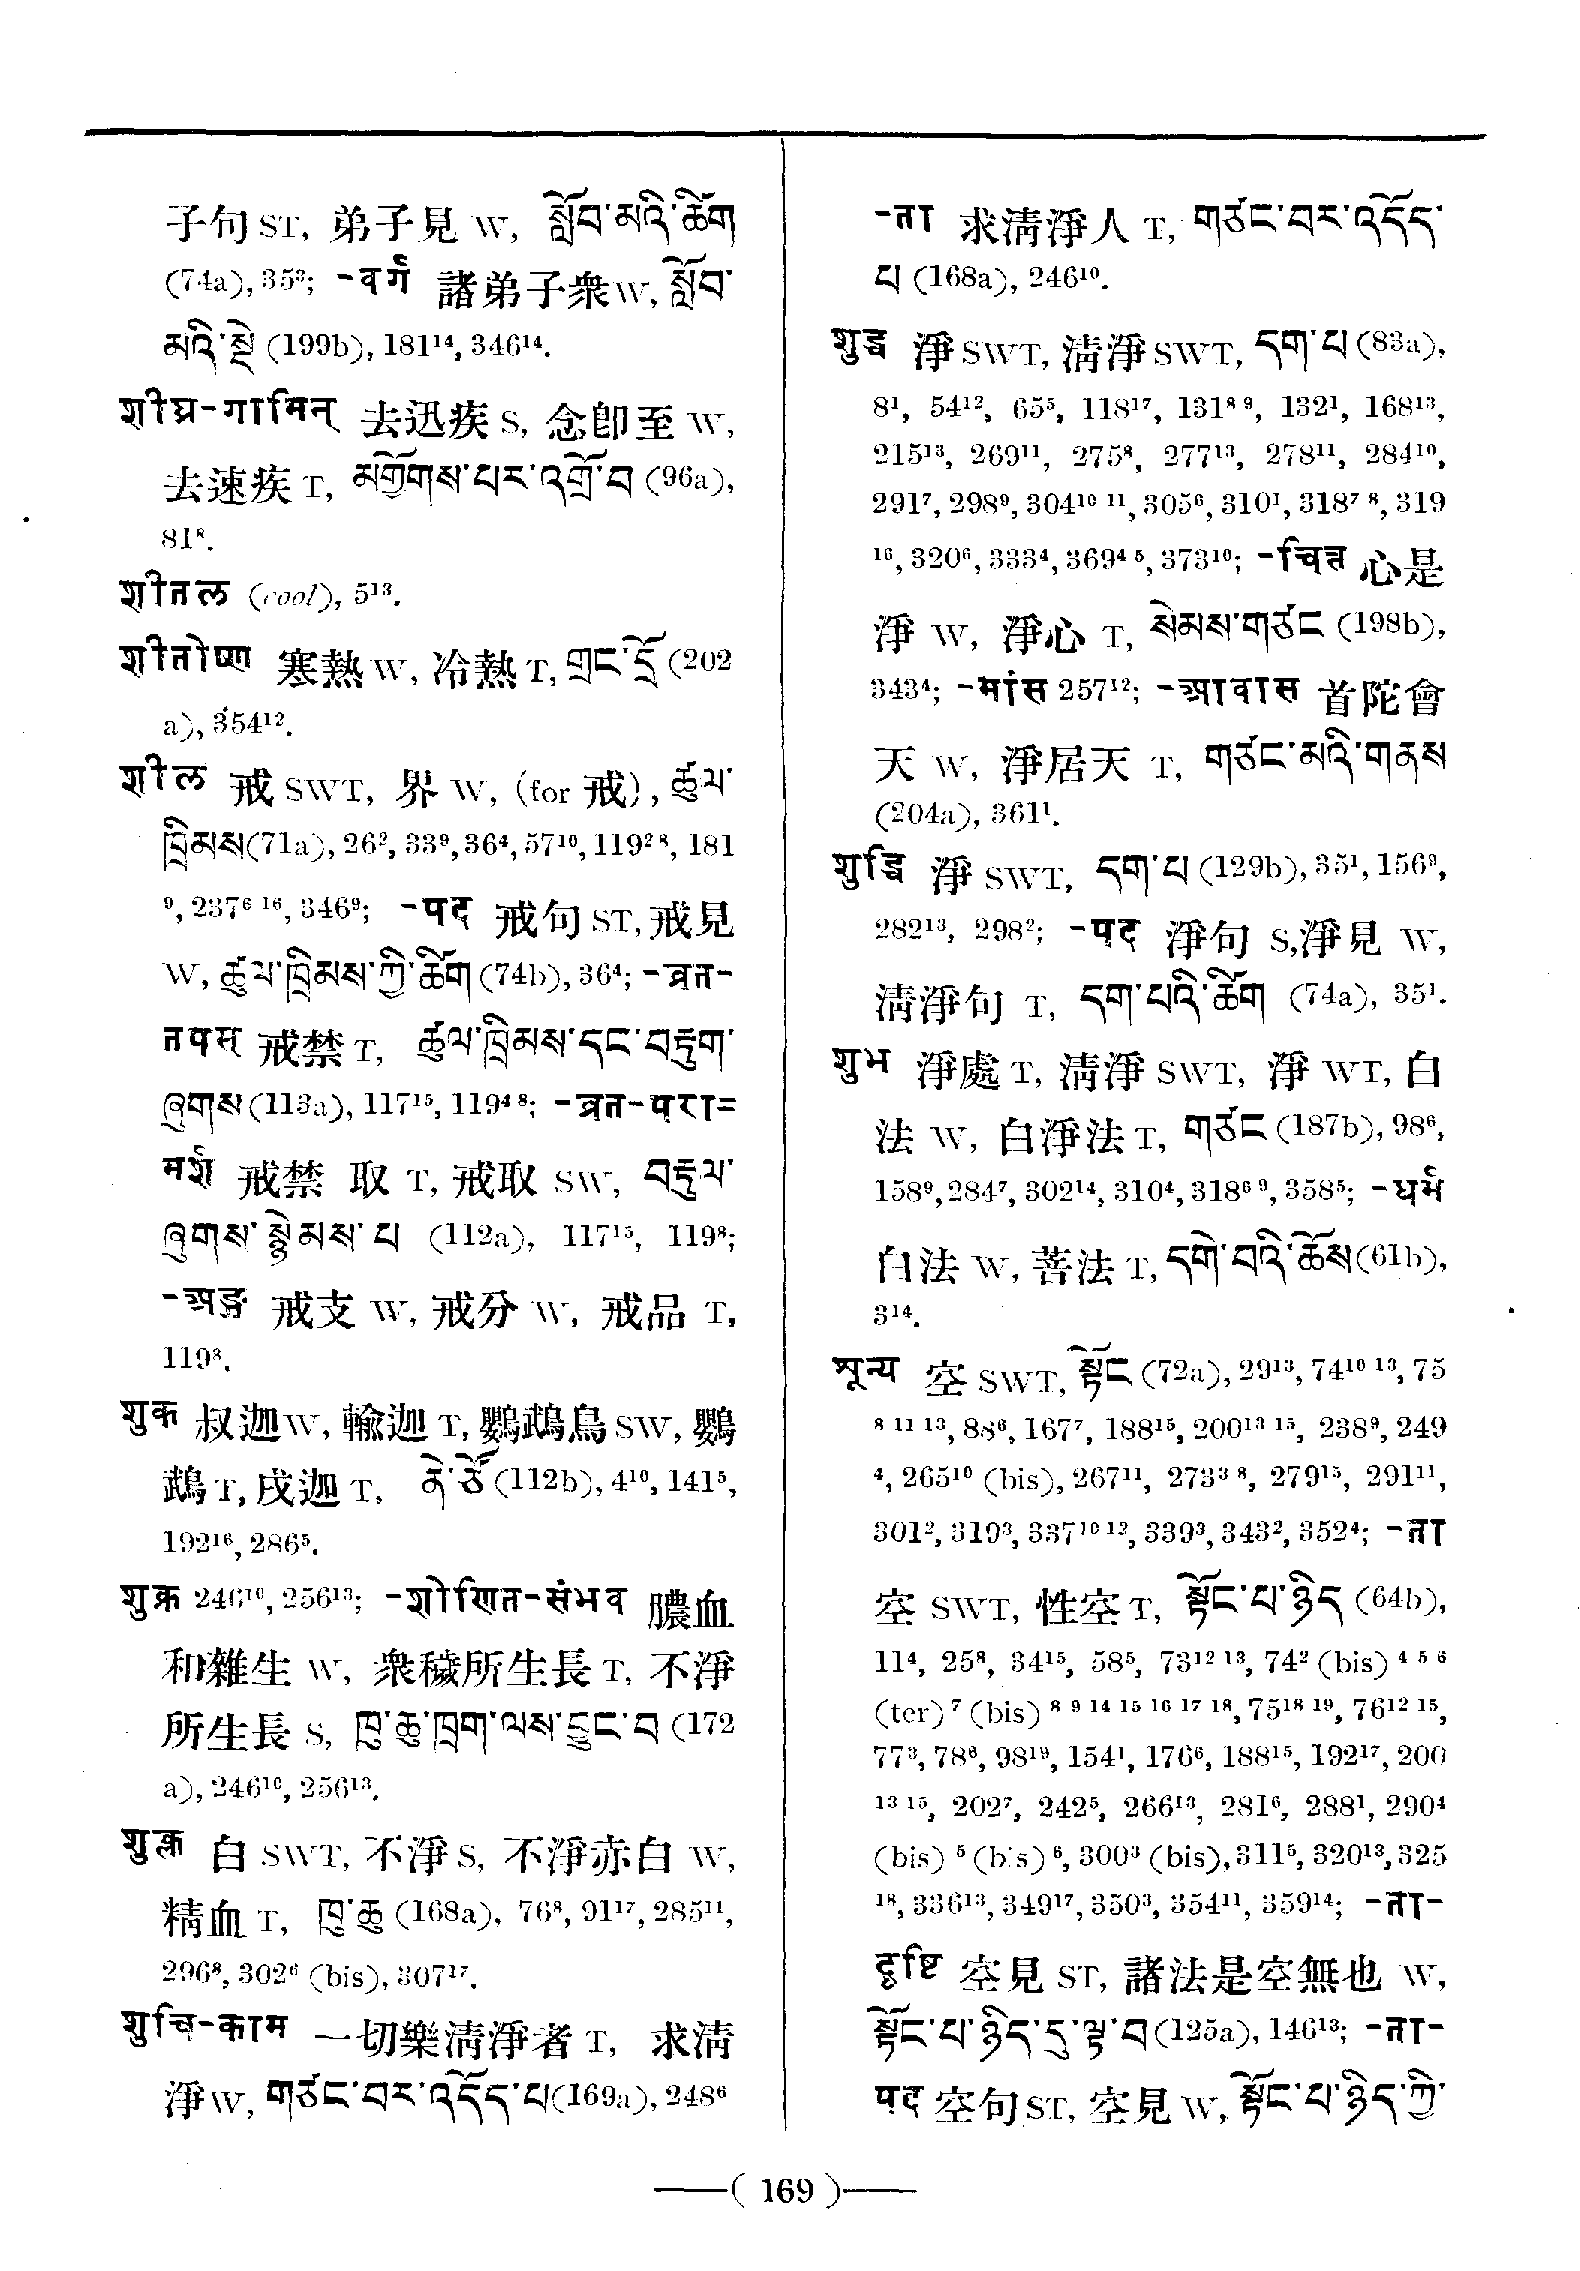 子句 ST, 弟子見 W, སློབ་མའི་ཚིག
(74a), 35³; -वर्ग 諸弟子衆 W, སློབ་
མའི་སྡེ (199b), 181¹⁴, 346¹⁴.
शीघ्र-गामिन् 去迅疾 S, 念卽至 W,
去速疾 T, མགྱོགས་པར་འགྲོ་བ (96a),
81⁸.
शीतल (cool), 5¹³.
शीतोष्ण 寒熱 W, 冷熱 T, གྲང་དྲོ (202
a), 354¹².
शील 戒 SWT, 界 W, (for 戒), ཚུལ་
ཁྲིམས (71a), 26², 33⁹, 36⁴, 57¹⁰, 119² ⁸, 181
⁹, 237⁶ ¹⁶, 346⁹; -पद 戒句 ST, 戒見
W, ཚུལ་ཁྲིམས་ཀྱི་ཚིག (74b), 36⁴; -व्रत-
तपस् 戒禁 T, ཚུལ་ཁྲིམས་དང་བརྟུག་
ཞུགས (113a), 117¹⁵, 119⁴ ⁸; -व्रत-परा=
मर्श 戒禁 取 T, 戒取 SW, བརྟུལ་
ཞུགས་སྙེམས་པ (112a), 117¹⁵, 119⁸;
-अङ्ग 戒支 W, 戒分 W, 戒品 T,
119⁸.
शुक 叔迦 W, 輸迦 T, 鸚鵡鳥 SW, 鸚
鵡 T, 戍迦 T, ནེ་ཙོ (112b), 4¹⁰, 141⁵,
192¹⁶, 286⁵.
शुक्र 246¹⁰, 256¹³; -शोणित-संभव 膿血
和雜生 W, 衆穢所生長 T, 不淨
所生長 S, ཁུ་ཆུ་ཁྲག་ལས་བྱུང་བ (172
a), 246¹⁰, 256¹³.
शुक्ल 白 SWT, 不淨 S, 不淨赤白 W,
精血 T, ཁུ་ཆུ (168a), 76⁸, 91¹⁷, 285¹¹,
296⁸, 302⁶ (bis), 307¹⁷.
शुचि-काम 一切樂淸淨者 T, 求淸
淨 W, གཙང་བར་འདོད་པ (169a), 248⁶
-ता 求淸淨人 T, གཙང་བར་འདོད་
པ (168a), 246¹⁰.
शुद्ध 淨 SWT, 淸淨 SWT, དག་པ (83a),
8¹, 54¹², 65⁵, 118¹⁷, 131⁸ ⁹, 132¹, 168¹³,
215¹³, 269¹¹, 275⁸, 277¹³, 278¹¹, 284¹⁰,
291⁷, 298⁹, 304¹⁰ ¹¹, 305⁶, 310¹, 318⁷ ⁸, 319
¹⁶, 320⁶, 333⁴, 369⁴ ⁵, 373¹⁰; -चित्त 心是
淨 W, 淨心 T, སེམས་གཙང (198b),
343⁴; -मांस 257¹²; -आवास 首陀會
天 W, 淨居天 T, གཙང་མའི་གནས
(204a), 361¹.
शुद्धि 淨 SWT, དག་པ (129b), 35¹, 156⁹,
282¹³, 298²; -पद 淨句 S, 淨見 W,
淸淨句 T, དག་པའི་ཚིག (74a), 35¹.
शुभ 淨處 T, 淸淨 SWT, 淨 WT, 白
法 W, 白淨法 T, གཙང (187b), 98⁶,
158⁹, 284⁷, 302¹⁴, 310⁴, 318⁶ ⁹, 358⁵; -धर्म
白法 W, 善法 T, དགེ་བའི་ཆོས (61b),
3¹⁴.
शून्य 空 SWT, སྟོང (72a), 29¹³, 74¹⁰ ¹³, 75
⁸ ¹¹ ¹³, 88⁶, 167⁷, 188¹⁵, 200¹³ ¹⁵, 238⁹, 249
⁴, 265¹⁰ (bis), 267¹¹, 273³ ⁸, 279¹⁵, 291¹¹,
301², 319³, 337¹⁰ ¹², 339³, 343², 352⁴; -ता
空 SWT, 性空 T, སྟོང་པ་ཉིད (64b),
11⁴, 25⁸, 34¹⁵, 58⁵, 73¹² ¹³, 74² (bis) ⁴ ⁵ ⁶
(ter) ⁷ (bis) ⁸ ⁹ ¹⁴ ¹⁵ ¹⁶ ¹⁷ ¹⁸, 75¹⁸ ¹⁹, 76¹² ¹⁵,
77³, 78⁶, 98¹⁹, 154¹, 176⁶, 188¹⁵, 192¹⁷, 200
¹³ ¹⁵, 202⁷, 242⁵, 266¹³, 281⁶, 288¹, 290⁴
(bis) ⁵ (bis) ⁶, 300³ (bis), 311⁵, 320¹³, 325
¹⁸, 336¹³, 349¹⁷, 350³, 354¹¹, 359¹⁴; -ता-
दृष्टि 空見 ST, 諸法是空無也 W,
སྟོང་པ་ཉིད་དུ་ལྟ་བ (125a), 146¹³; -ता-
पद 空句 ST, 空見 W, སྟོང་པ་ཉིད་ཀྱི་
——( 169 )——